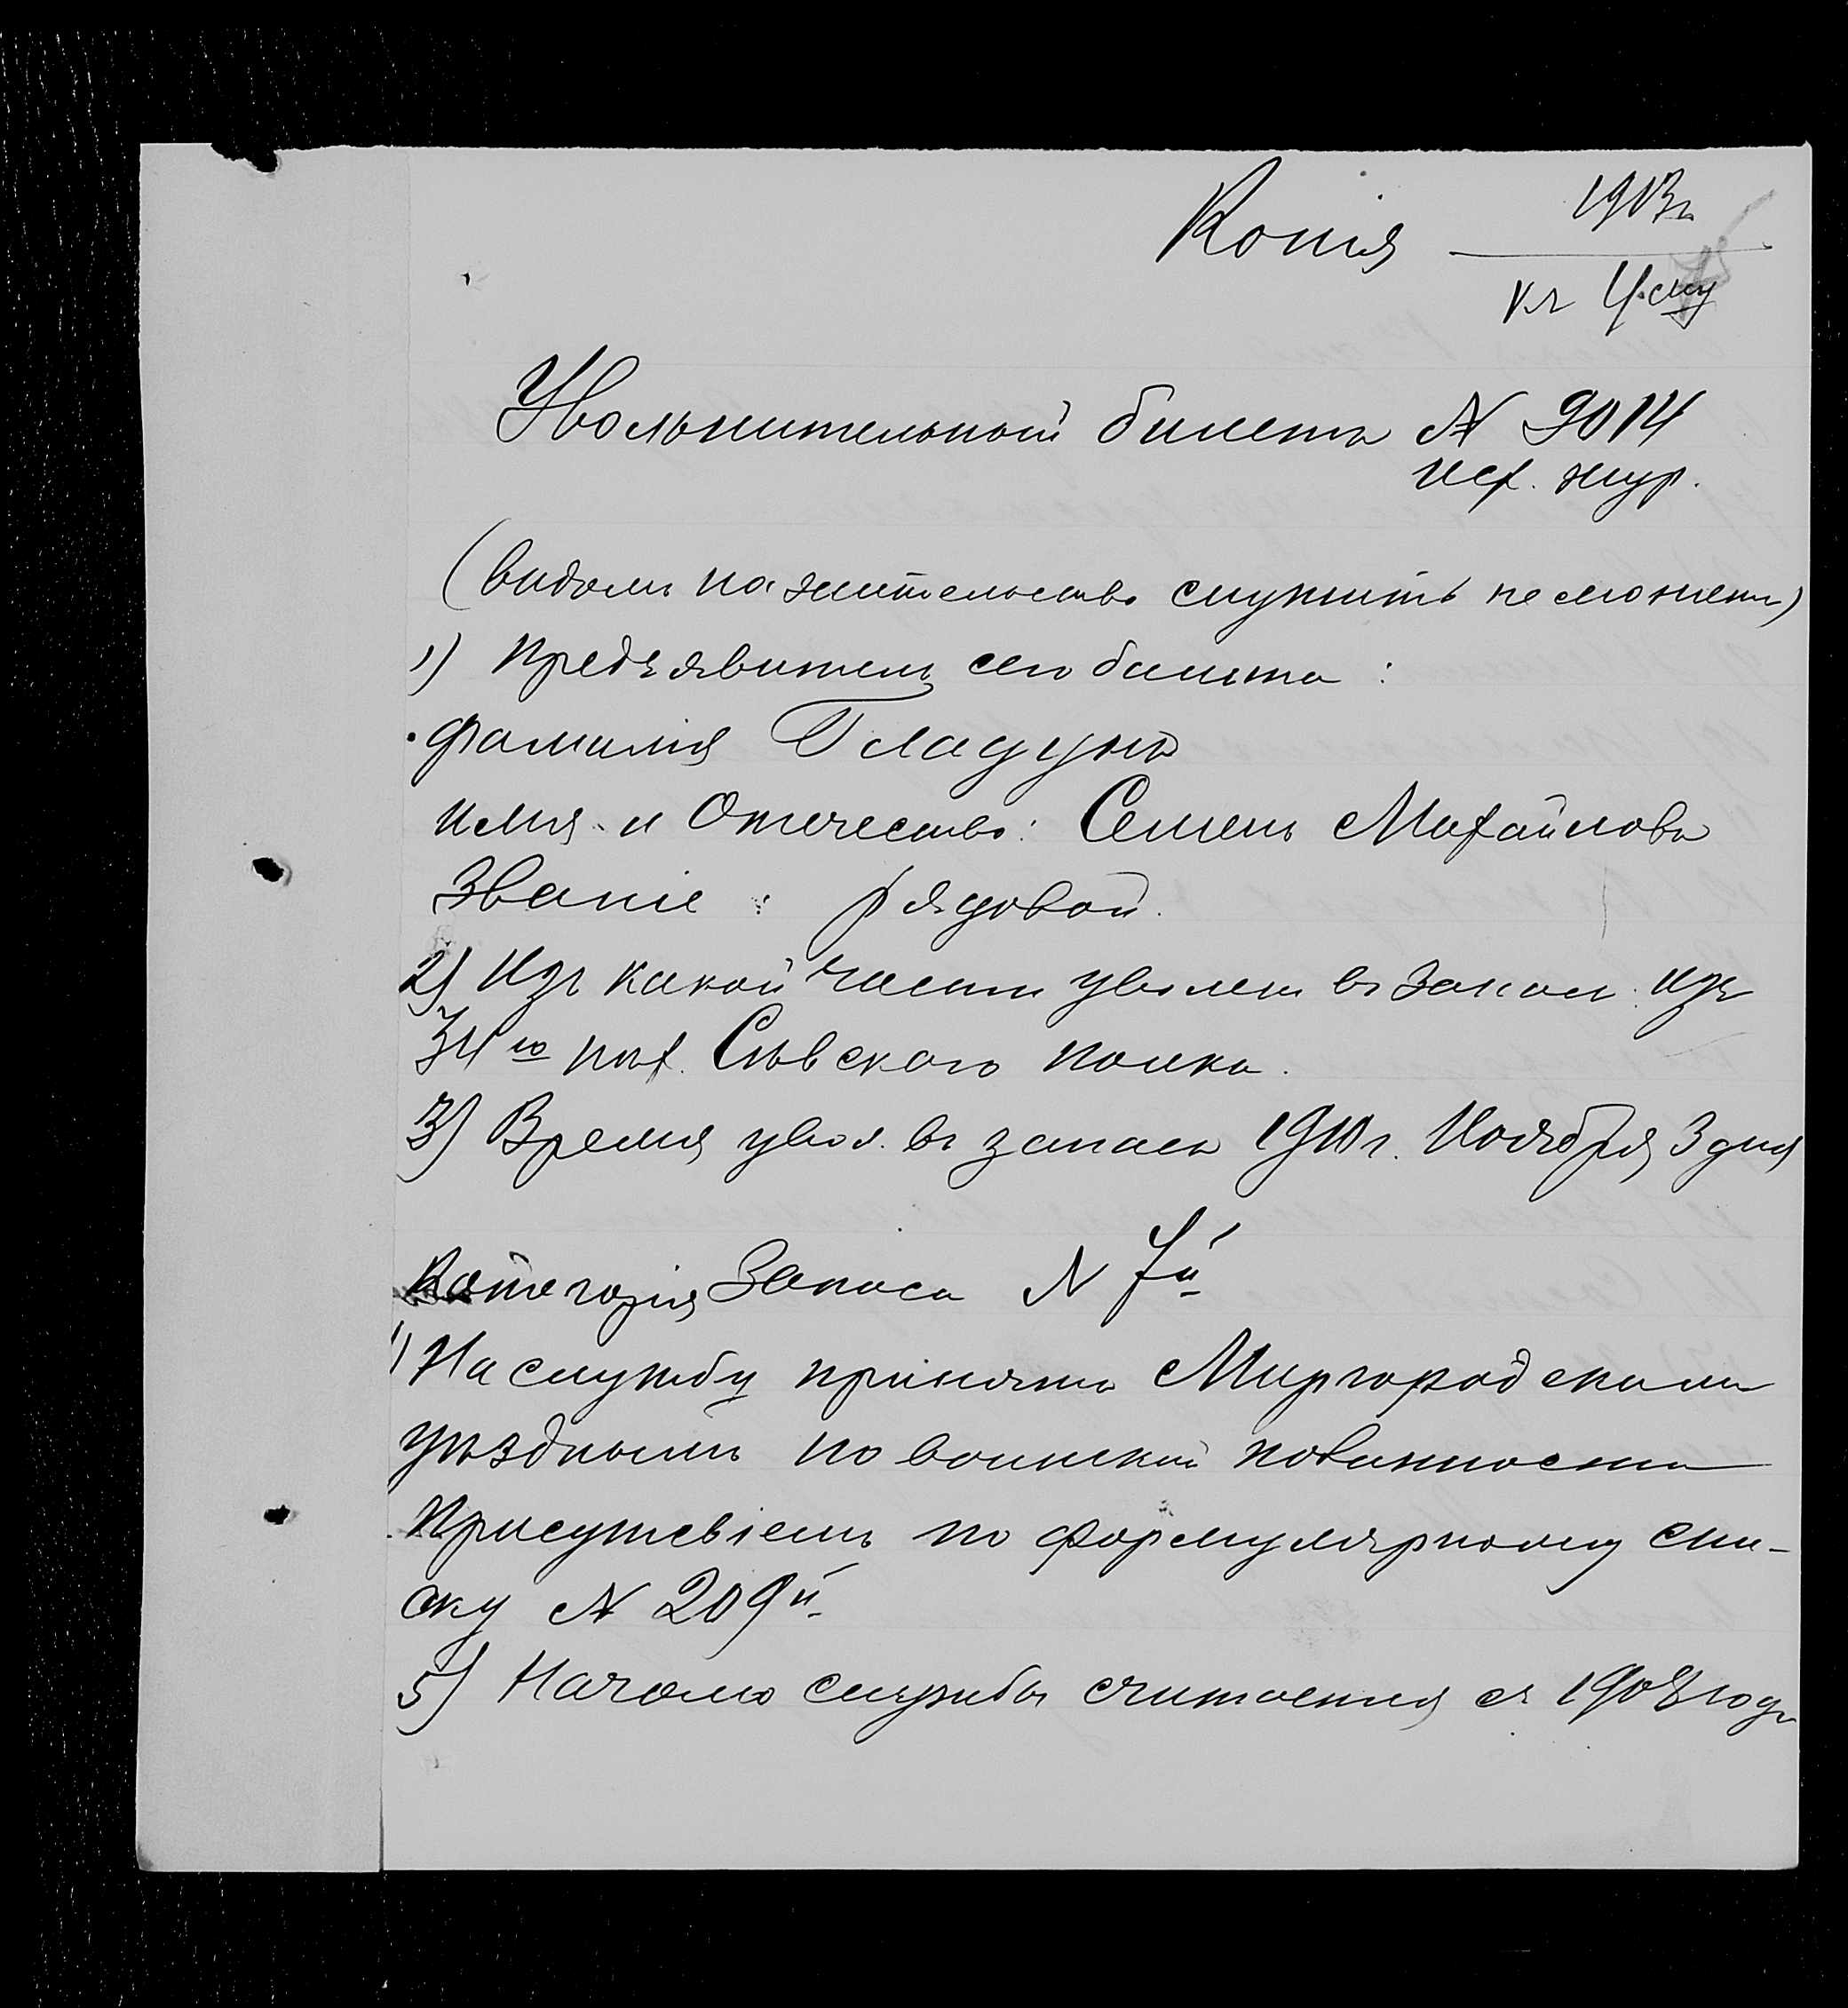 Копія
1913г
къ 4.
Увольнительный билетъ № 9014
исх. жур.
(видомъ на жительство служить не можетъ)
1) Предъявитель сего билета:
фамилія Гладунъ
имя и Отчество: Семенъ Михайловъ
Званіе: рядовой.
2) Изъ какой части уволен въ Запасъ: изъ
34го пѣх. Сѣвского полка.
3) Время увол. въ запасъ 1910г. Ноября 3 дня
Категорія Запаса № 7й
На службу принятъ Миргородскимъ
уѣзднымъ по воинской повинности
Присутствіемъ по формулярному спи-
ску № 209й
5) Начало службы считается съ 1908 года